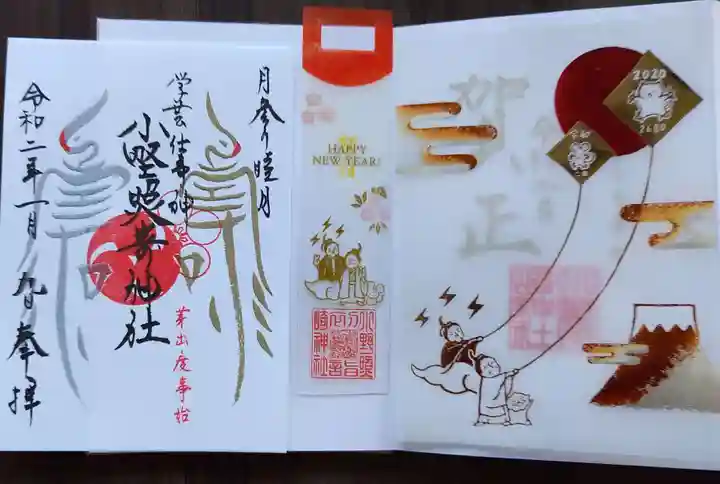 月参り睦月
学芸仕事神
小野照崎神社
芽出度事始
令和二年一月九日奉拝
HAPPY
NEW YEAR!
小野照
崎神社
賀正
2020
2680